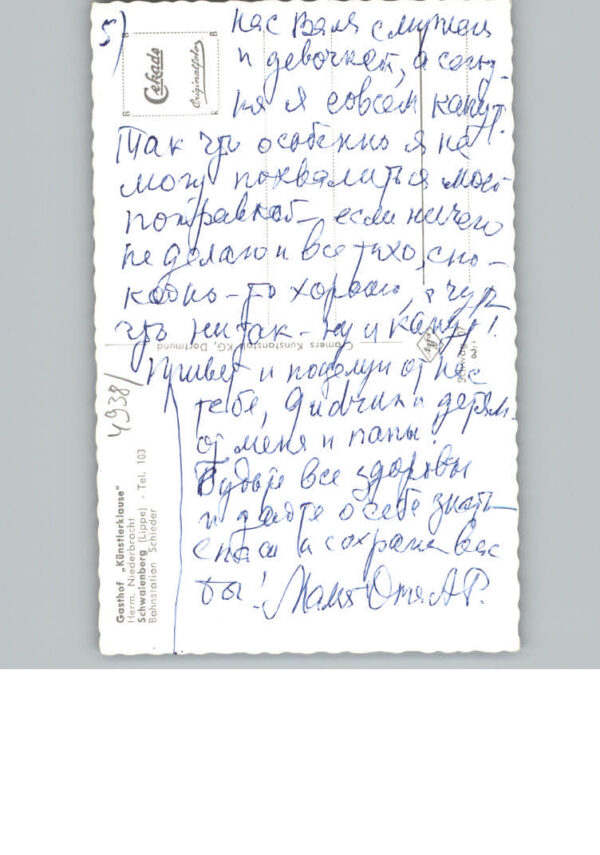 5)
Cekade
Originalfoto
нас Валя с мужем
и девочкой, а сегод-
ня я совсем капут.
Так что особенно я не
могу похвалиться моей
поправкой – если ничего
не делаю и все тихо, спо-
койно – то хорошо, а чуть
что не так – ну и капут!
Cramers Kunstanstalt KG, Dortmund
Привет и поцелуи от нас
тебе, и детям
от меня и папы!
Будьте все здоровы
и дайте о себе знать
спаси и сохрани вас
Бог! Мама
4938/
Gasthof „Künstlerklause"
Herm. Niederbracht
Schwalenberg (Lippe) - Tel. 103
Bahnstation Schieder